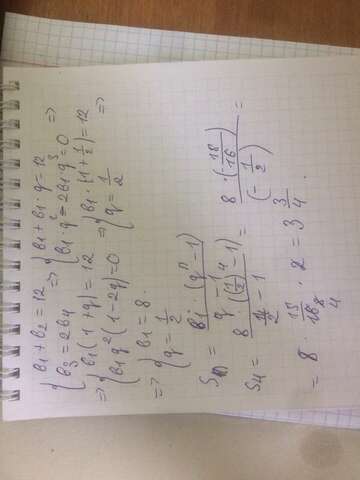 { b1 + b2 = 12 => { b1 + b1 · q = 12 =>
{ b3 = 2b4 { b1 · q² = 2b1q³ = 0
=> { b1(1 + q) = 12 => { b1 · (1 + 1/2) = 12 =>
{ b1q²(1 - 2q) = 0 { q = 1/2
=> { b1 = 8.
{ q = 1/2
Sn = b1 · (qⁿ - 1) / q - 1
S4 = 8((1/2)⁴ - 1) / 1/2 - 1 = 8 · (15/16) / (- 1/2) =
= 8 · 15/16 · 2 = 3 3/4.